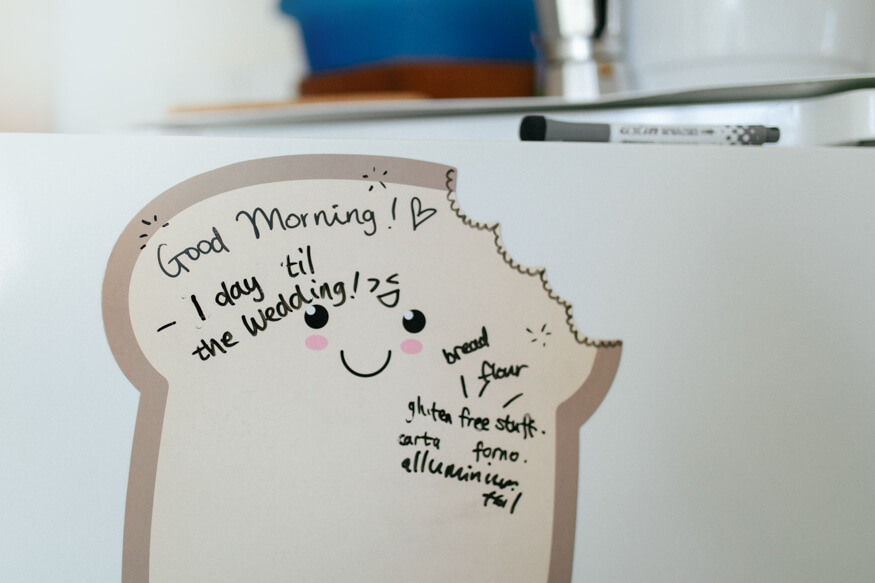 Good Morning! ♡
- 1 day til
the Wedding!
bread
flour
gluten free stuff.
carta forno.
alluminium
foil